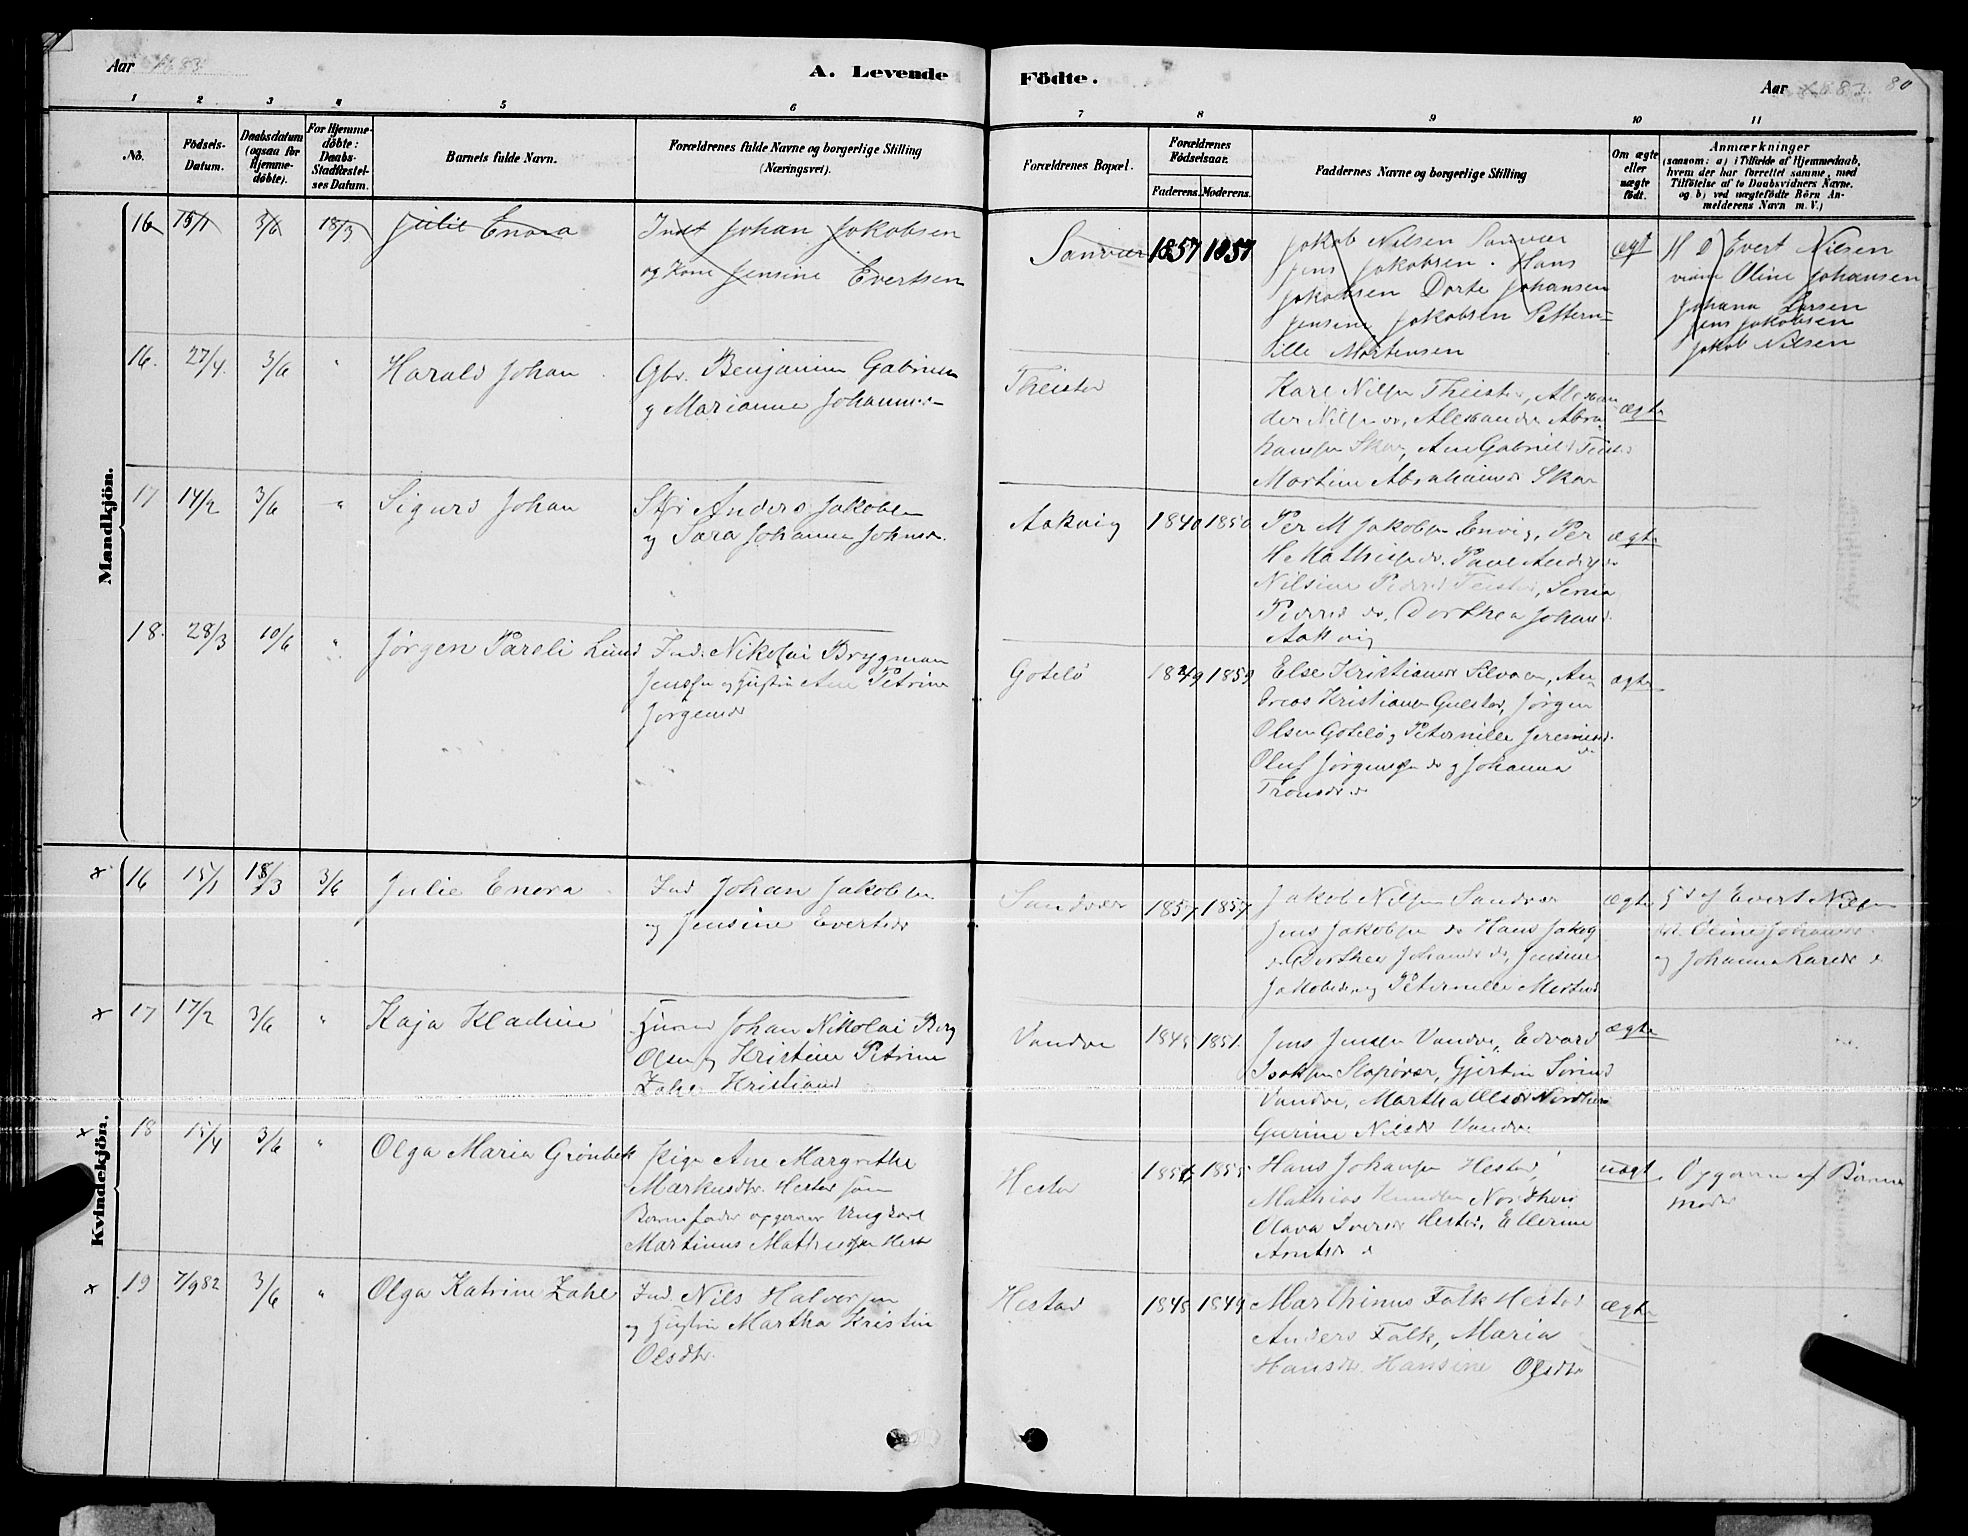 Aar 1883
A. Levende Födte.
Aar 1883. 80
1 2 3 4 5 6 7 8 9 10 11
No.
Födsels-
Datum.
Daabsdatum
(ogsaa for
Hjemme-
döbte).
For Hjemme-
döbte:
Daabs-
Stadfæstel-
ses Datum.
Barnets fulde Navn.
Forældrenes fulde Navne og borgerlige Stilling
(Næringsvei).
Forældrenes Bopæl.
Forældrenes
Födselsaar.
Faderens. Moderens.
Faddernes Navne og borgerlige Stilling
Om ægte
eller
uægte
födt.
Anmærkninger
(saasom: a) i Tilfælde af Hjemmedaab,
hvem der har forrettet samme, med
Tilföielse af to Daabsvidners Navne,
og b) ved uægtefödte Börn An-
melderens Navn m. V.)
Mandkjön.
16 15/1 3/6 18/3 Julie Enora
Indt Johan Jakobsen
og Kone Jensine Evertsen
Sanvær 1857 1857
Jakob Nilsen Sanvær
Jens Jakobsen. Hans
Jakobsen Dorte Johansen
Jensine Jakobsen Pettern=
ille Mortensen
ægt
H D Evert Nilsen
Oline Johansen
Johana Larsen
Jens Jakobsen
Jakob Nilsen
16. 27/4. 3/6 " Harald Johan
Gbr. Benjamin Gabrielsen
og Marianne Johannes=
Theistø
Karl Nilsen Theistø, Alexan
der Nilsen do, Alexander Abra
hamsen Skar, Ane Gabriels Teistø
Martine Abrahamsd Skar
ægte
17 14/2 3/6 " Sigurd Johan
Anders Jakobsen
og Sara Johanna Johnsd.
Aakvig 1840 1850
Per M Jakobsen Envig, Per
H Mathisen do. Paul Anders
Nilsine Peders Teistø,
Peders do, Dorthea Johans
Aakvig
ægte
18. 28/3 10/6 " Jørgen Pareli Lund
Ind. Nikolai Brygman
Jensen og Hustru Ane Petrine
Jørgensd
Goteslø 1849 1859
Else Kristiansd Silvær, An
dreas Kristiansen Gulstad, Jørgen
Olsen Goteslø, Peternille Jeremiasd
Oluf Jørgensen do og Johanna
Tronsd do
ægte
Kvindekjön.
x 16 15/1 18/3 3/6 Julie Enora
Ind Johan Jakobsen
og Jensine Evertsd
Sandvær 1857. 1857.
Jakob Nilsen Sandvær
Jens Jakobsen do Hans Jakob
do Dorthea Johansd do, Jensine
Jakobsd, og Peternille Mortensd
ægte
Evert Nilsen
Oline Johansd
og Johanna Larsd d
x 17 17/2 3/6 " Kaja Kladine
Johan Nikolai Berg
Olsen og Kristine Petrine
Zahl Kristiansd
Vandve 1845 1851.
Jens Jensen Vandve, Edvard
Isaksen Slapøvær, Gjertin Sørensd
Vandve, Martha Olsdt Nordherø
Gurine Nilsdt Vandve
ægte
x 18 15/4 3/6 " Olga Maria Grønbek
Pige Ane Margrethe
Markusdtr. Hestad som
Barnefader opgiver Ungkarl
Martinus Mathisen Hest
Hestad 1851 1855
Hans Johansen Hestad
Mathias Knudsen Nordherø
Olava Iversd Hestad, Ellerine
Arntsd d
uægt.
Opgaven af Barnets
moder
x 19 7/9 82 3/6 " Olga Katrine Zahl
Ind. Nils Halvorsen
og Hustru Martha Kristin
Olsdtr.
Hestad 1845 1849
Marthinus Falk Hestad
Anders Falk, Maria
Hansdtr. Hansine Olsdtr
ægte